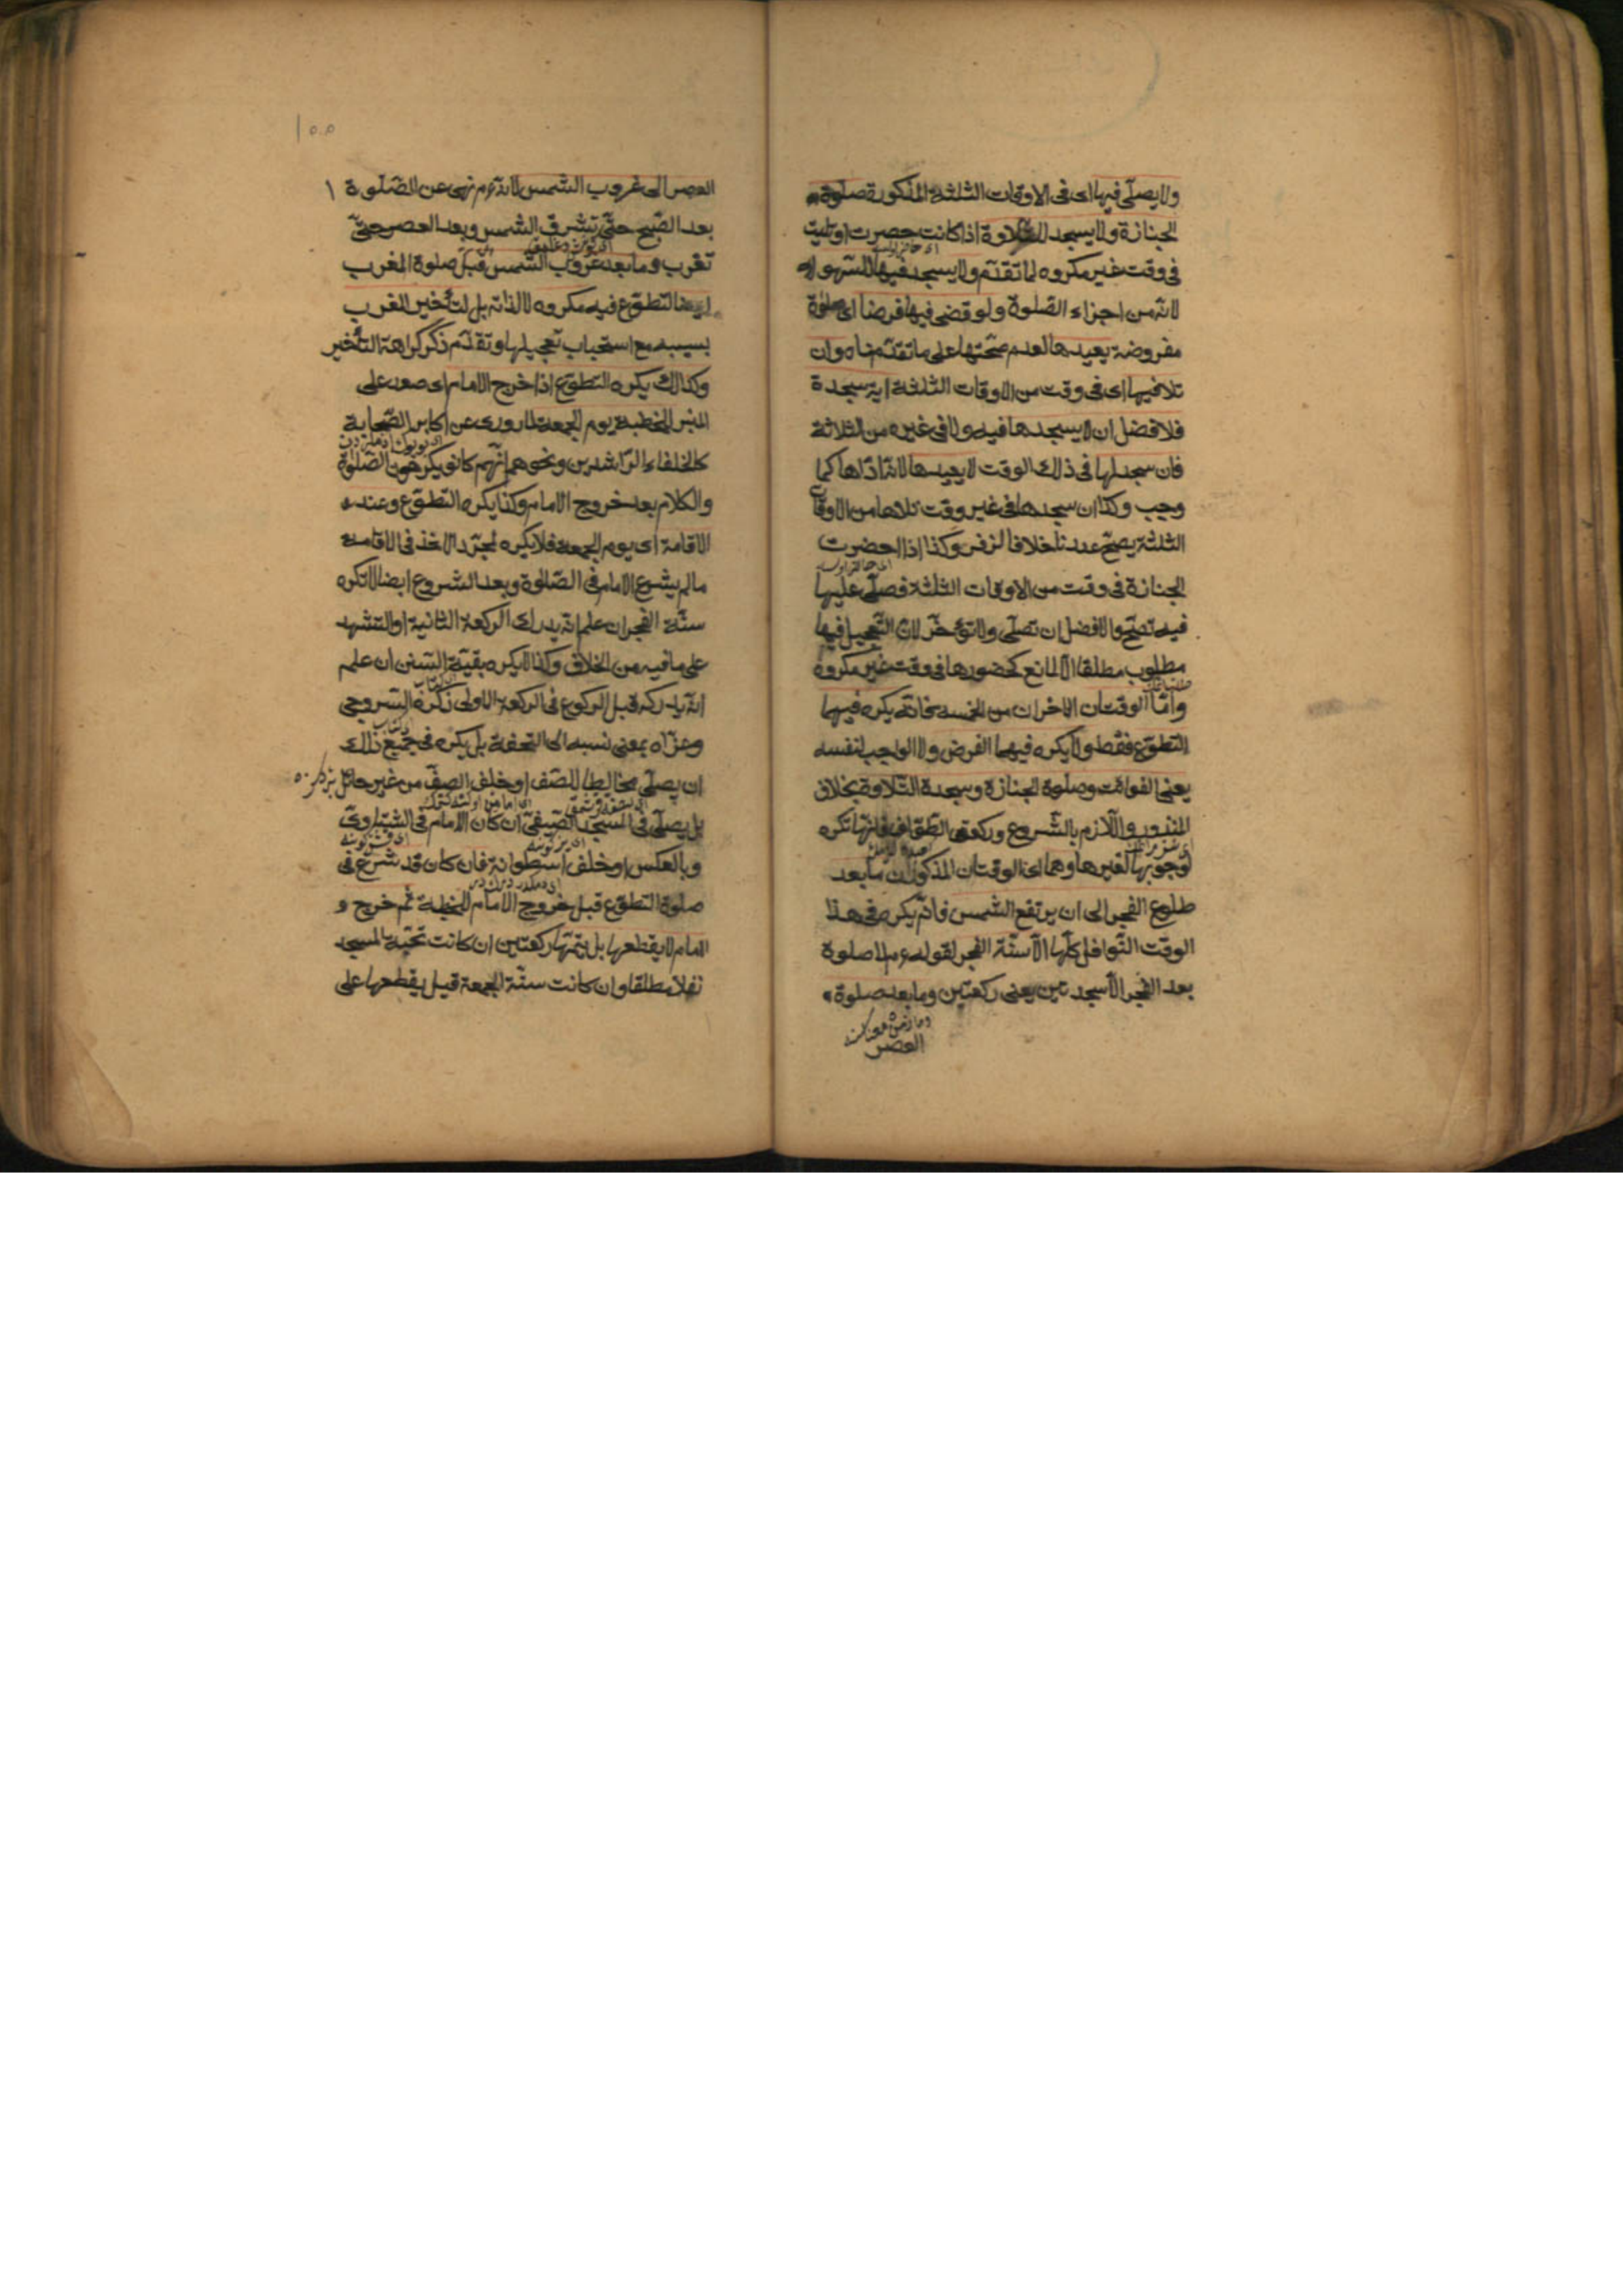 ولا يصلّى فيها اى فى الاوقات الثلثة المذكورة صلوة
الجنازة ولا يسجد للتلاوة اذا كانت حضرت او تليت
فى وقت غير مكروه لما تقدّم ولا يسجد فيها للسّهو
لانّه من اجزاء الصّلوة ولو قضى فيها فرضا اى صلوة
مفروضة يعيدها لعدم صحّتها على ما تقدّم بناه وان
تلا فيها اى فى وقت من الاوقات الثلثة اية سجدة
فلافضل ان لا يسجدها فيه ولا فى غيره من الثلاثة
فان سجد لها فى ذلك الوقت لا يعيدها لانّه ادّاها كما
وجب وكذا ان سجدها فى غير وقت تلاها من الاوقات
الثلثة يصحّ عندنا خلافا لزفر وكذا اذا حضرت
الجنازة فى وقت من الاوقات الثلثة فصلّى عليها
فيه تصحّ والافضل ان تصلّى ولا تؤخّر لانّ التّعجيل فيها
مطلوب مطلقا الّا لمانع كحضورها فى وقت غير مكروه
وامّا الوقتان الاخران من الخمسة فانّه يكره فيهما
التطوّع فقط ولا يكره فيهما الفرض ولا الواجب لنفسه
يعنى الفوائت وصلوة الجنازة وسجدة التّلاوة بخلاف
المنذور واللّازم بالشّروع وركعتى الطّواف فانّها تكره
لوجوبها لغيرها وهما اى الوقتان المذكوران ما بعد
طلوع الفجر الى ان يرتفع الشمس فانّه يكره فى هذا
الوقت النّوافل كلّها الّا سنّة الفجر لقوله ءم لا صلوة
بعد الفجر الّا سجدتين يعنى ركعتين وما بعد صلوة
العصر
العصر الى غروب الشمس لانّه ءم نهى عن الصّلوة
بعد الصّبح حتّى تشرق الشمس وبعد العصر حتّى
تغرب وما بعد غروب الشّمس قبل صلوة المغرب
ايضا التطوّع فيه مكروه لا لذاته بل لتأخير المغرب
بسببه مع استحباب تعجيلها وتقدّم ذكر كراهة التأخير
وكذالك يكره التطوّع اذا خرج الامام اى صعد على
المنبر للخطبة يوم الجمعة لما روى عن اكابر الصّحابة
كالخلفاء الرّاشدين ونحوهم انّهم كانو يكرهون الصّلوة
والكلام بعد خروج الامام وكذا يكره التطوّع وعند
الاقامة اى يوم الجمعة فلا يكره لمجرّد الاخذ فى الاقامة
مالم يشرع الامام فى الصّلوة وبعد الشروع ايضا لا تكره
سنّة الفجر ان علم انّه يدرك الركعة الثانية او التشهد
على ما فيه من الخلاف وكذا لا يكره بقيّة السّنن ان علم
انّه يدركه قبل الركوع فى الركعة الاولى ذكره السّروجى
وعزاه بمعنى نسبه الى التحفة بل يكره فى جميع ذلك
ان يصلّى مخالطا للصّف او خلف الصفّ من غير حائل
بل يصلّى فى المسجد الصّيفىّ ان كان الامام فى الشّتاوىّ
وبالعكس او خلف اسطوانة فان كان قد شرع فى
صلوة التطوّع قبل خروج الامام للخطبة ثمّ خرج و
الامام لا يقطعها بل يتمّها ركعتين ان كانت تحيّة المسجد
نفلا مطلقا وان كانت سنّة الجمعة قيل يقطعها على